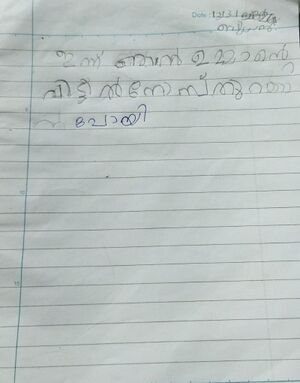 Date: 13/3/
ഇന്ന് ഞാൻ ഉമ്മാന്റെ
വീട്ടിൽ നോമ്പ് തുറക്കാ
ൻ പോയി